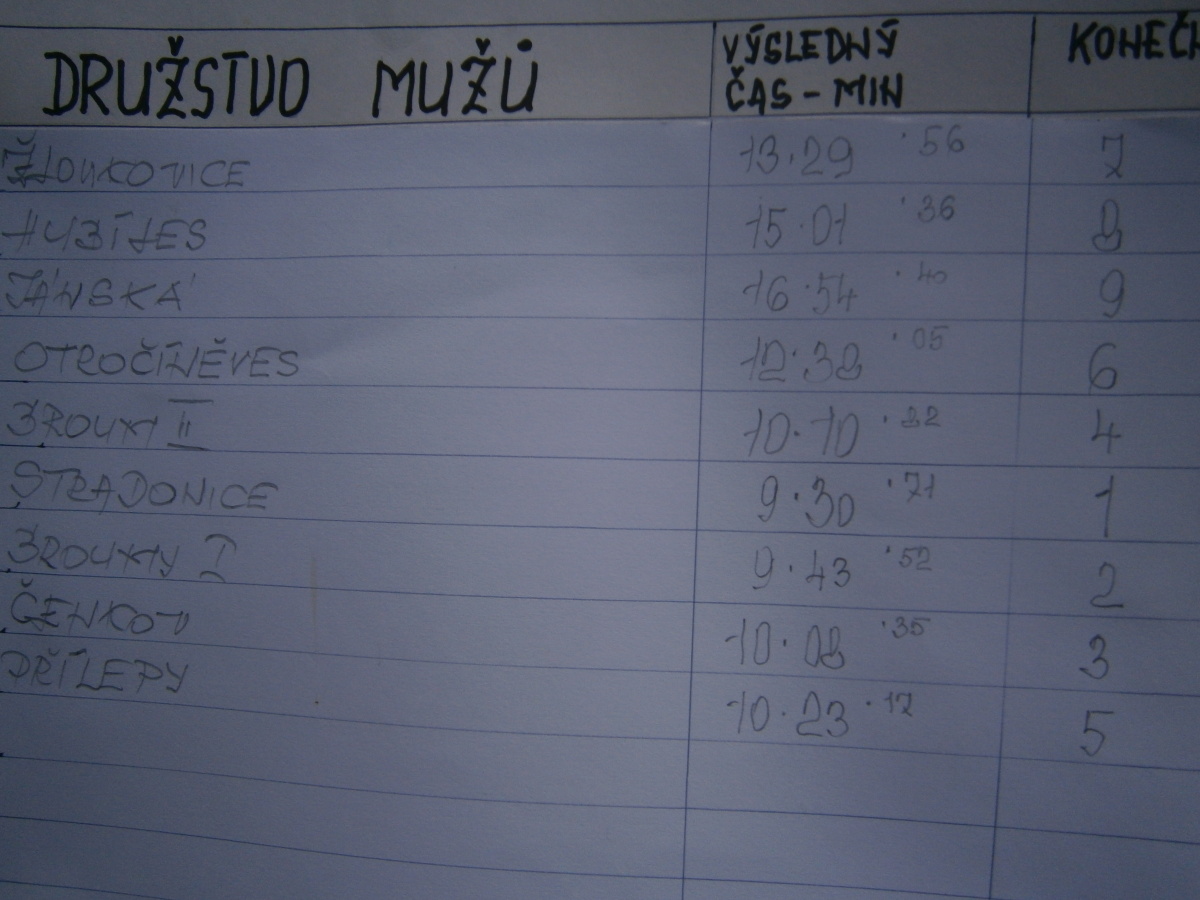 DRUŽSTVO MUŽŮ VÝSLEDNÝ ČAS - MIN KONEČN
ŽLOUKOVICE 13.29 .56 7
HUDLICE 15.01 .36 8
JÁNSKÁ 16.54 .40 9
OTROČÍNĚVES 12.38 .05 6
BROUMY II 10.10 .82 4
STRADONICE 9.30 .71 1
BROUMY I 9.43 .52 2
ČENKOV 10.08 .35 3
PŘÍLEPY 10.23 .12 5